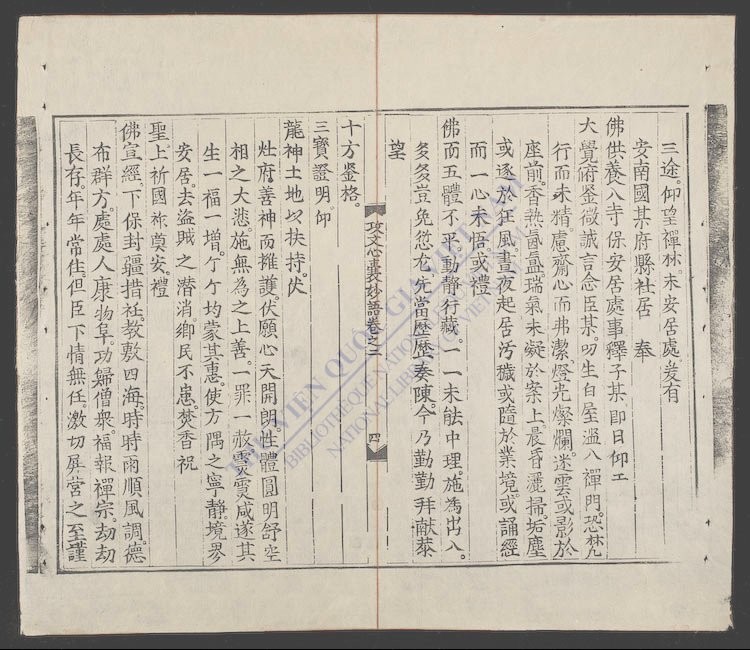 三途。仰望禪林。未安居處。爰有
安南國某府縣社居 奉
佛供養入寺保安居處事釋子某。即日仰工
大覺府鉴微誠言念臣某。叨生白屋濫入禪門。恐梵
行而未精。慮齋心而弗潔。燈光燦爛。迷雲或影於
座前。香熱氤氳瑞氣未凝於案上晨昏灑掃垢塵
或逐於狂風。晝夜起居汚穢或隨於業境或誦經
而一心未悟或禮
佛而五體不平。動靜行藏。一一未能中理。施為出入。
多多豈免愆尤。先當歷歷奏陳。今乃勤勤拜献。恭
望
攻文心囊妙語卷之二 四
十方鉴格。
三寶證明。仰
龍神土地以扶持。伏
灶府善神而擁護。伏願心天開朗。性體圓明舒空
相之大悲。施無為之上善。一罪一赦霛霛咸遂其
生一福一增。个个均蒙其惠。使方隅之寧靜。境界
安居。去盜賊之潛消。鄉民不患。焚香祝
聖。上祈國祚奠安。禮
佛宣經。下保封疆措祉。教敷四海。時時雨順風調。德
布群方。處處人康物阜。功歸僧衆。福報禪宗。劫劫
長存。年年常住但臣下情無任。激切屏营之至謹
THƯ VIỆN QUỐC GIA VIỆT NAM
BIBLIOTHÈQUE NATIONALE DU VIETNAM
NATIONAL LIBRARY OF VIETNAM